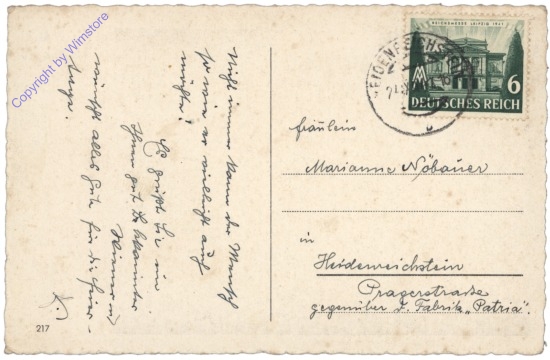 Nicht immer kann der Mensch
so wie er vielleicht auch
möchte!
Es grüßt Sie ein
Ihnen gut Bekannter
und
wünscht alles Gute für die Feier-
tage.
K.
217
REICHSMESSE LEIPZIG 1941
6
DEUTSCHES REICH
Fräulein
Marianne Nöbauer
in
Heidenreichstein
Pragerstraße
gegenüber d. Fabrik „Patria".
Copyright by Wimstore